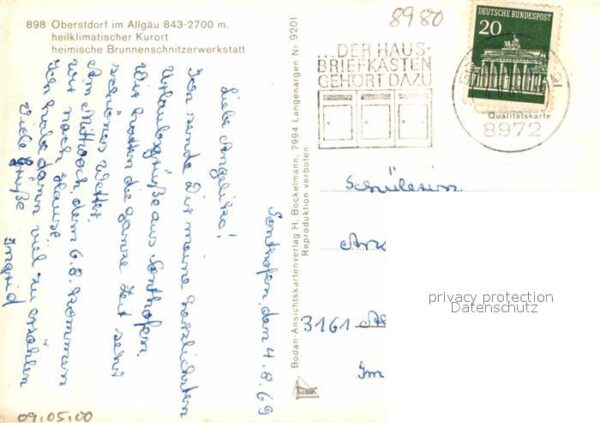 898 Oberstdorf im Allgäu 843-2700 m.
heilklimatischer Kurort
heimische Brunnenschnitzerwerkstatt
8980
...DER HAUS-
BRIEFKASTEN
GEHÖRT DAZU
DEUTSCHE BUNDESPOST
20
Qualitätskarte
8972
Sonthofen, den 4.8.69
Liebe Angelika!
Ich sende Dir meine herzlichsten
Urlaubsgrüße aus Sonthofen.
Wir hatten die ganze Zeit sehr
schönes Wetter.
Am Mittwoch, dem 6.8. kommen
wir nach Hause.
Ich habe dann viel zu erzählen
Viele Grüße
Ingrid
Bodan-Ansichtskartenverlag H. Bockelmann, 7994 Langenargen Nr. 9201
Reproduktion verboten
bodan
Schülerin
3161
Im
privacy protection
Datenschutz
09.05.00